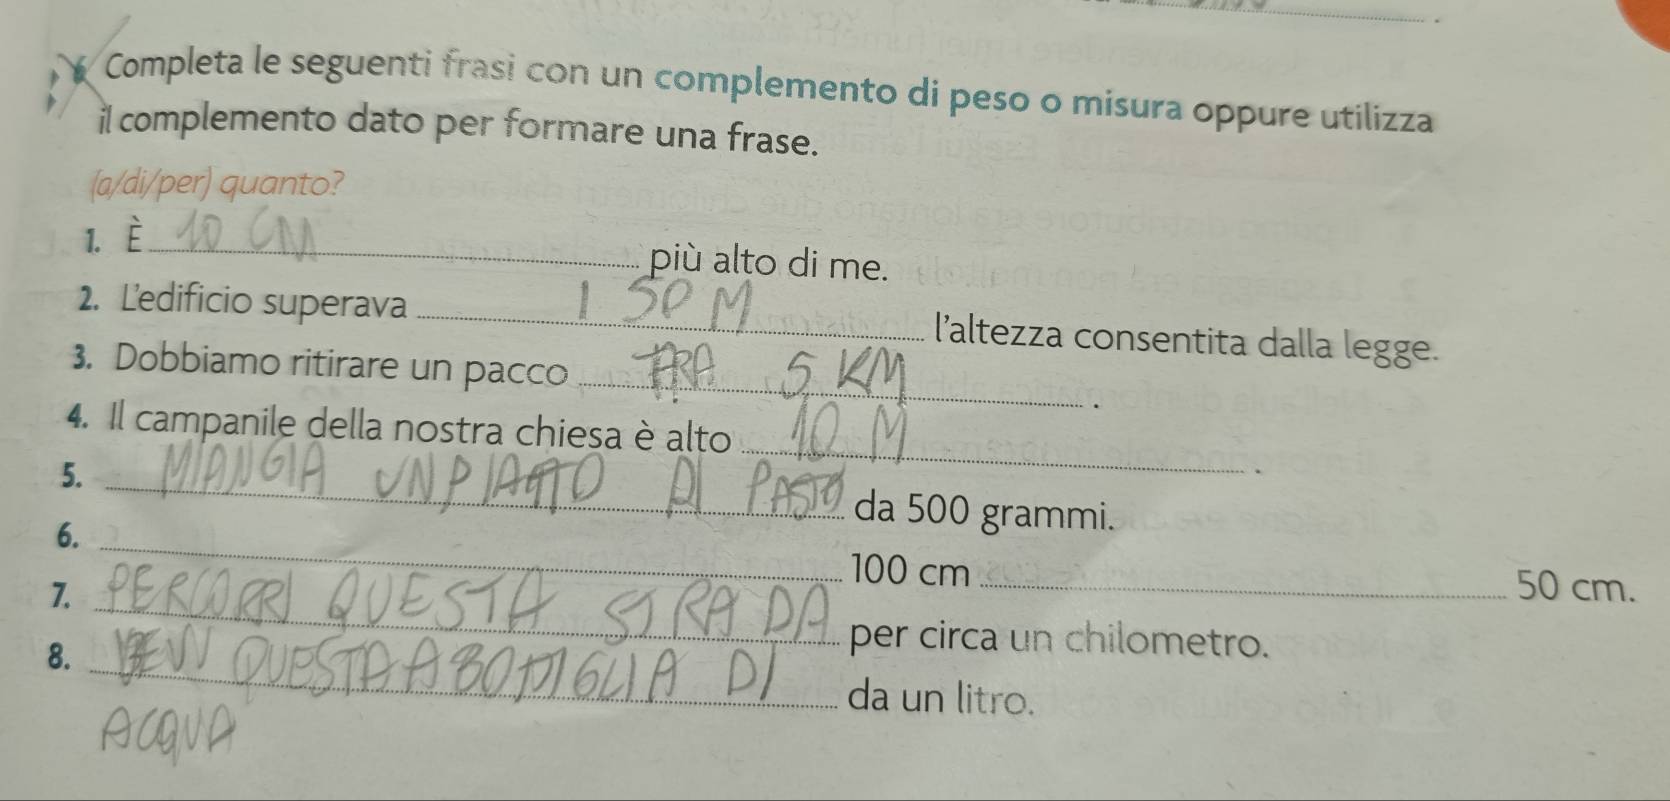 Completa le seguenti frasi con un complemento di peso o misura oppure utilizza
il complemento dato per formare una frase.
(a/di/per) quanto?
1. È 10 CM più alto di me.
2. L'edificio superava 150 M l'altezza consentita dalla legge.
3. Dobbiamo ritirare un pacco FRA 5 KM.
4. Il campanile della nostra chiesa è alto 10 M.
5. MANGIA UN PIATTO DI PASTA da 500 grammi.
6. 100 cm 50 cm.
7. PERCORRI QUESTA STRADA per circa un chilometro.
8. QUESTA BOTTIGLIA DI da un litro.
ACQUA